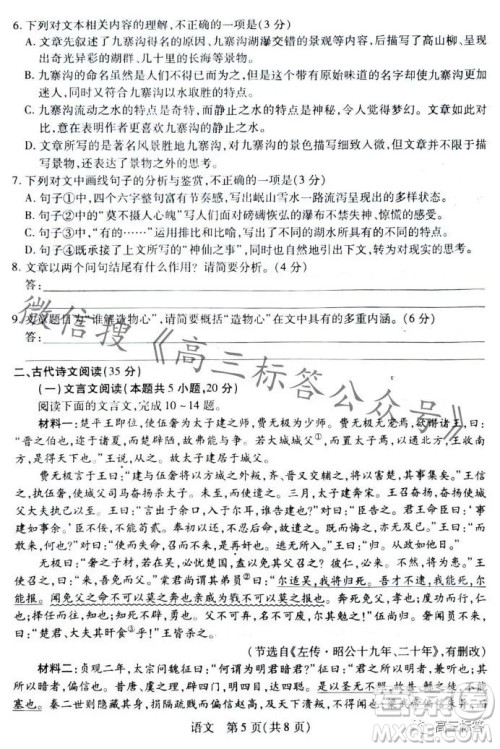 6. 下列对文本相关内容的理解,不正确的一项是(3 分)
A. 文章先叙述了九寨沟得名的原因、九寨沟湖瀑交错的景观等内容,后描写了高山柳、呈现
出奇光异彩的湖群、几十里的长海等景物。
B. 九寨沟的命名虽然是人们不太在意的问题,但是这个带有原始味道的名字与它的本色
有着相配之处,同时体现出九寨沟以水取胜的特点。
C. 九寨沟流动之水的特点是奇特,而静止之水的特点是神秘,令人常觉得梦幻。文章这样
写,意在表明作者更喜欢九寨沟的静止之水。
D. 文章中所写的是著名风景胜地九寨沟的水,文章对九寨沟的景色描写细致,作者既描
写了景物,还表达了对自然之景的思考。
7. 下列对文中画线句子的分析与鉴赏,不正确的一项是(3 分)
A. 句子①中,四个六字整句富有节奏感,突出岷山雪水一路流泻呈现出的多样状态。
B. 句子②中的“莫不摄人心魄”写出了人们面对磅礴恢弘的瀑布不禁感到惊慌的感受。
C. 句子③中,“……的”运用排比和比喻,增强了气势,形象地写出了湖水水光的特点。
D. 句子④既承接了上文所写的“神仙之事”,同时也体现了自然之水的神奇力量。
8. 文章以两个问句结尾有什么作用?请简要分析。(4 分)
答:
9. 文章题目为“谁解造物心”,请简要概括“造物心”在文中的多重内涵。(6 分)
答:
二、古代诗文阅读(35 分)
(一)文言文阅读(本题共 5 小题,20 分)
阅读下面的文言文,完成 10~14 题。
材料一:楚平王即位,使伍奢为太子建之师,费无极为少师,无宠焉,欲谮诸王。费无极言于楚子曰:
“晋之伯也,迩于诸夏,而楚辟陋,故弗能与争。若大城城父①,而置太子焉,以通北方,王收南方,是得天下也。”
王说,从之。故太子建居于城父。
费无极言于楚子曰:“建与伍奢将以方城之外叛,齐、晋又交辅之,将以害楚,其事集矣。”王信
之,执伍奢,使城父司马奋扬杀太子。未至,而使遣之。三月,太子建奔宋。王召奋扬,奋扬使城
父大夫执己以至。王曰:“言出于余口,入于尔耳,谁告建也?”对曰:“臣告之。君王命臣曰:‘
事建如事余。’臣不佞,不能苟贰。奉初以还,不忍后命,故遣之。既而悔之,亦无及已。”王曰:“而
敢来,何也?”对曰:“使而失命,召而不来,是再奸也。逃无所入。”王曰:“归,从政如他日。”
无极曰:“奢之子材,若在吴,必忧楚国,盍以免其父召之。彼仁,必来。不然,将为患。”王使召
之,曰:“来,吾免而父。”棠君尚谓其弟员②曰:“尔适吴,我将归死。吾才不逮,我能死,尔
能报。闻免父之命不可以莫之奔也亲戚为戮不可以莫之报也奔死免父,孝也;度功而行,仁也;
择任而往,知也;知死不辟,勇也。父不可弃,名不可废,尔其勉之!”伍尚归。奢闻员不来,曰:“楚
君、大夫其旰食乎!”王皆杀之。
(节选自《左传·昭公十九年、二十年》,有删改)
材料二:贞观二年,太宗问魏征曰:“何谓为明君暗君?”征曰:“君之所以明者,兼听也;其所以
暗者,偏信也。
秦二世则隐藏其身,捐隔疏贱而偏信赵高,及天下溃叛,不得闻也。
语文 第 5 页(共 8 页)
微信搜《高三标答公众号》
高三标答